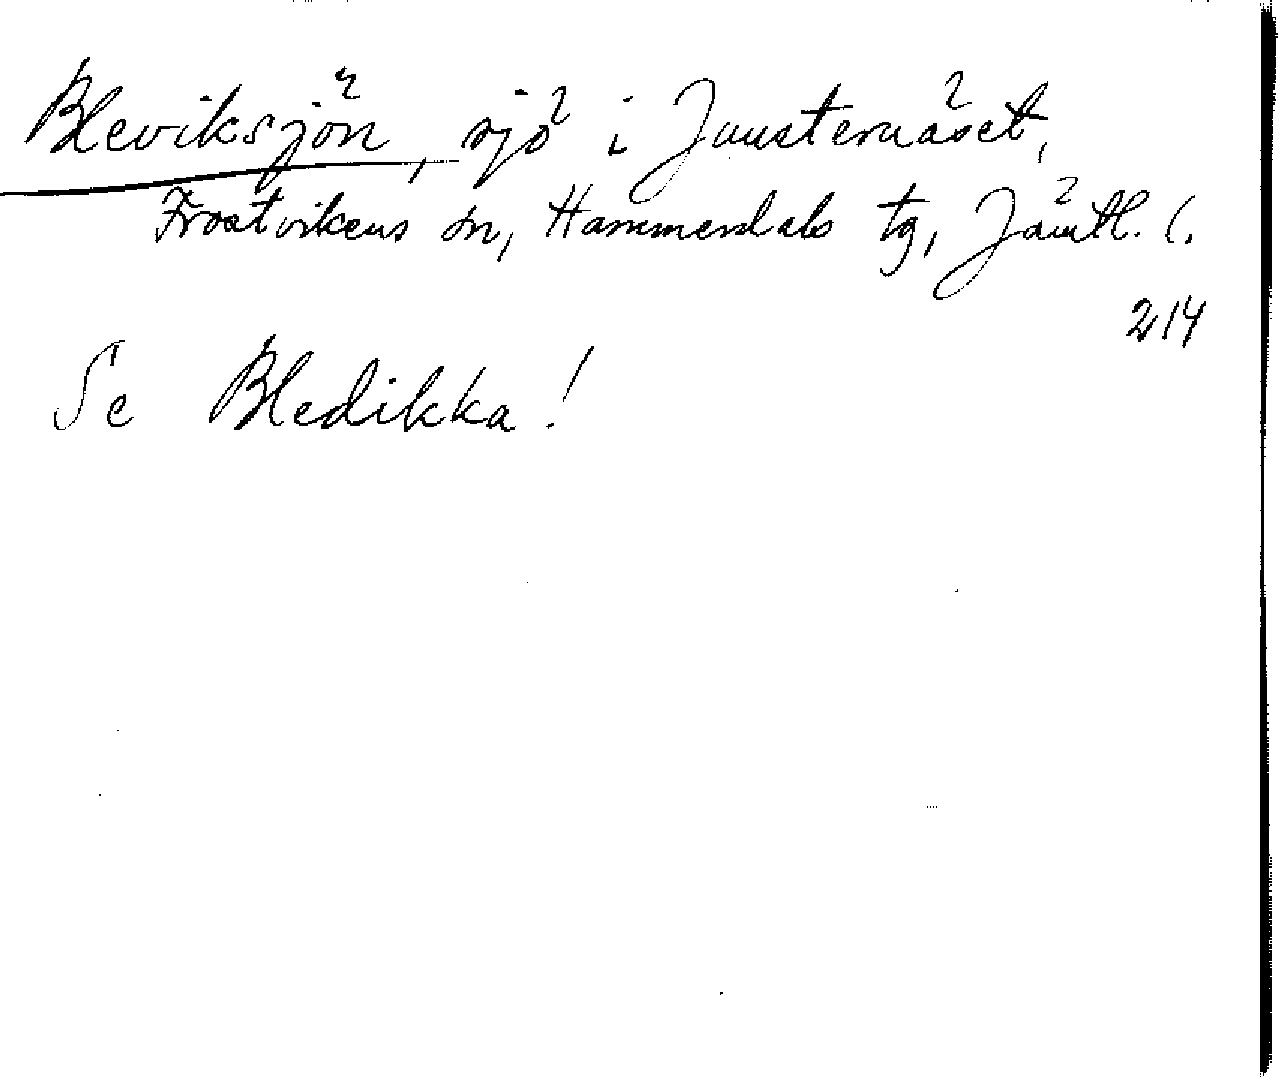 Bleviksjön, sjö i Junsternäset,
Frostvikens sn, Hammerdals tg, Jämtl. l.
214
Se Bledikka!